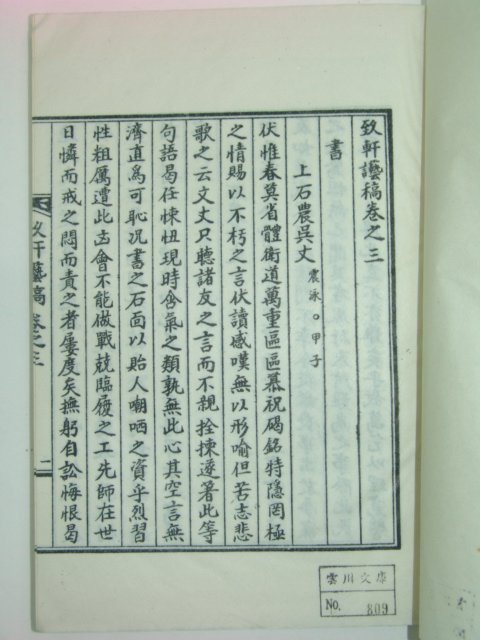 致軒藝稿卷之三
書
上石農吳丈 震泳○甲子
伏惟春莫省體衛道萬重區區慕祝碣銘特隱罔極
之情賜以不朽之言伏讀感嘆無以形喻但苦志悲
歌之云文丈只聽諸友之言而不親拴揀遂著此等
句語曷任悚忸現時含氣之類孰無此心其空言無
濟直爲可恥况書之石面以貽人嘲哂之資乎烈習
性粗厲遭此𠚕會不能做戰兢臨履之工先師在世
日憐而戒之悶而責之者屢度矣撫躬自訟悔恨曷
致軒藝稿 卷之三
一
雲川文庫
No. 809